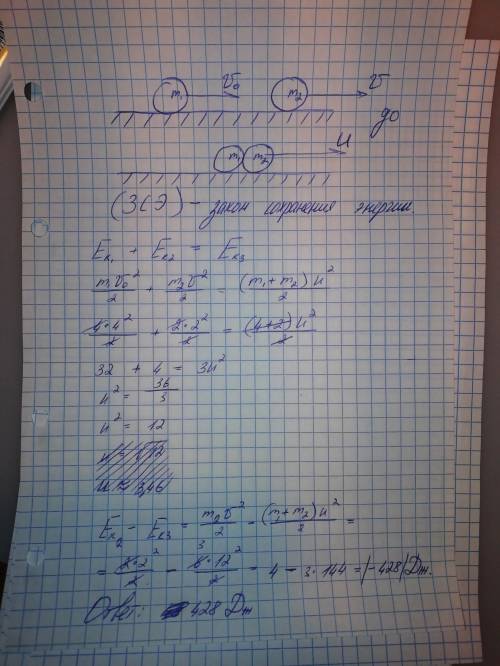 m₁ v₀ m₂ v
до
m₁ m₂ u
(ЗСЭ) - закон сохранения энергии.
Eк₁ + Eк₂ = Eк₃
m₁v₀²/2 + m₂v²/2 = (m₁+m₂)u²/2
4·4²/2 + 2·2²/2 = (4+2)u²/2
32 + 4 = 3u²
u² = 36/3
u² = 12
u ≈ 3,46
Eк₂ - Eк₃ = m₂v²/2 - (m₁+m₂)u²/2 =
= 2·2²/2 - 6·12²/2 = 4 - 3·144 = |-428| Дж.
Ответ: 428 Дж